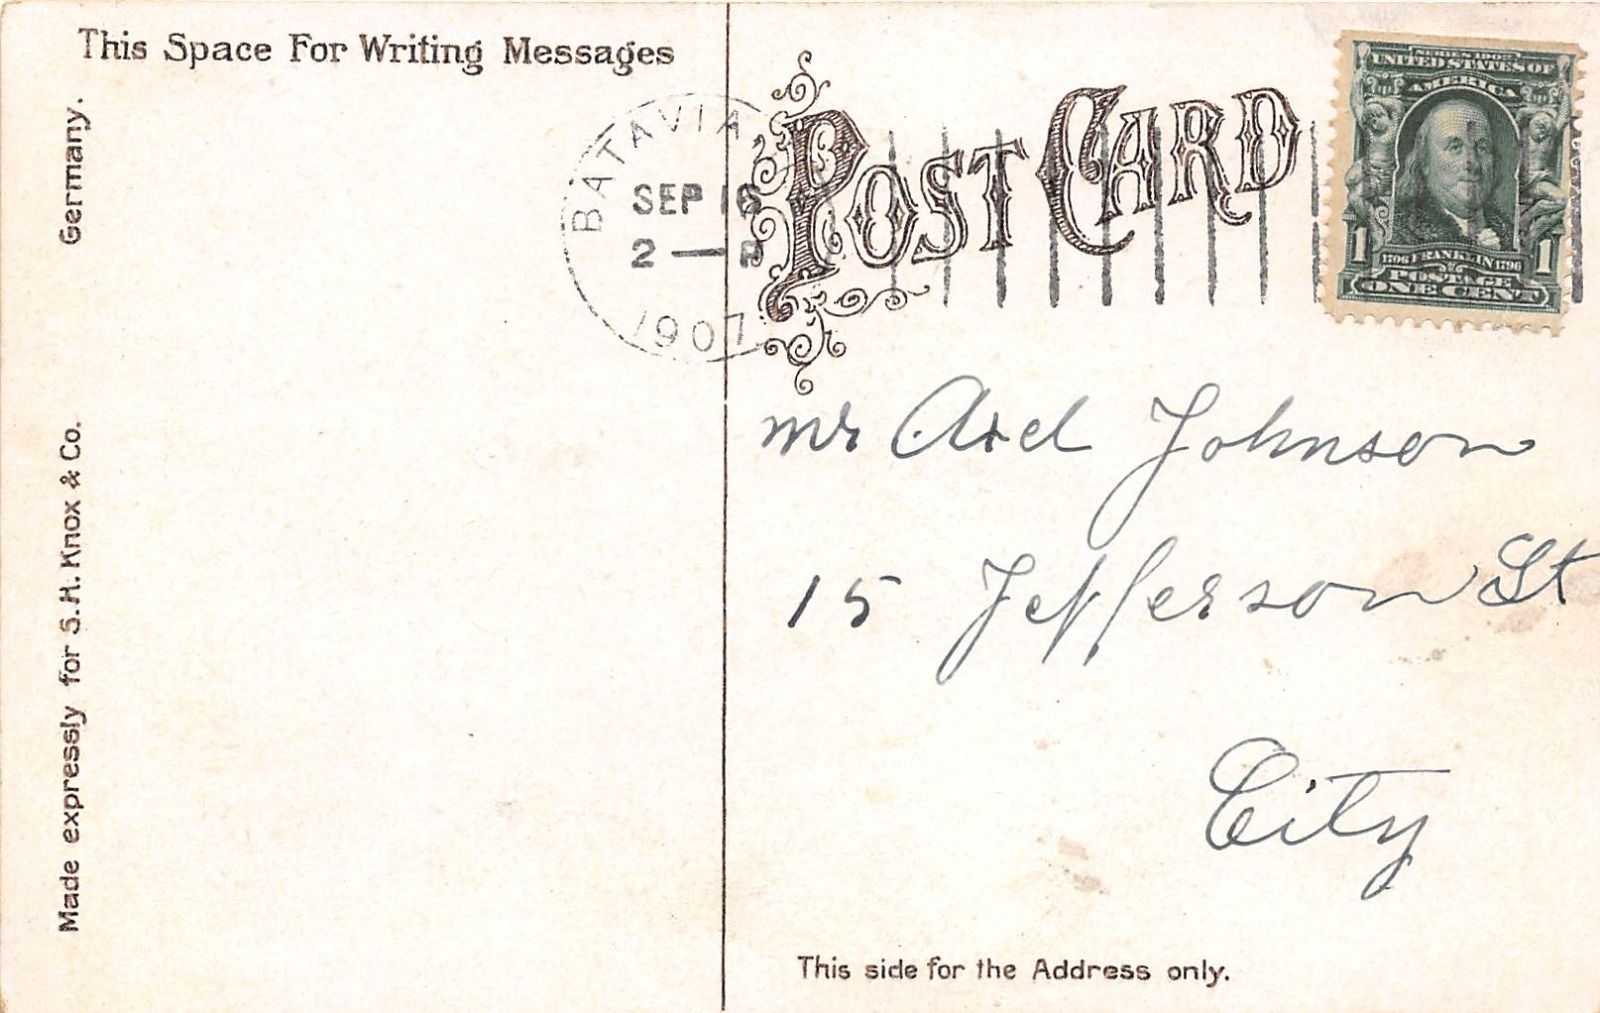 This Space For Writing Messages
Germany.
Made expressly for S.H. Knox & Co.
BATAVIA,
SEP 16
2 — P
1907
POST CARD
SERIES 1902
UNITED STATES OF
AMERICA
1706 FRANKLIN 1790
POSTAGE
1 ONE CENT 1
Mr Axel Johnson
15 Jefferson St
City
This side for the Address only.